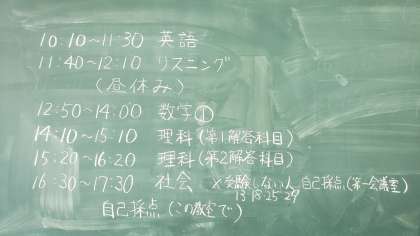 10:10~11:30 英語
11:40~12:10 リスニング
(昼休み)
12:50~14:00 数学①
14:10~15:10 理科(第1解答科目)
15:20~16:20 理科(第2解答科目)
16:30~17:30 社会 ×受験しない人 自己採点(第一会議室)
13 18 25 29
自己採点(この教室で)